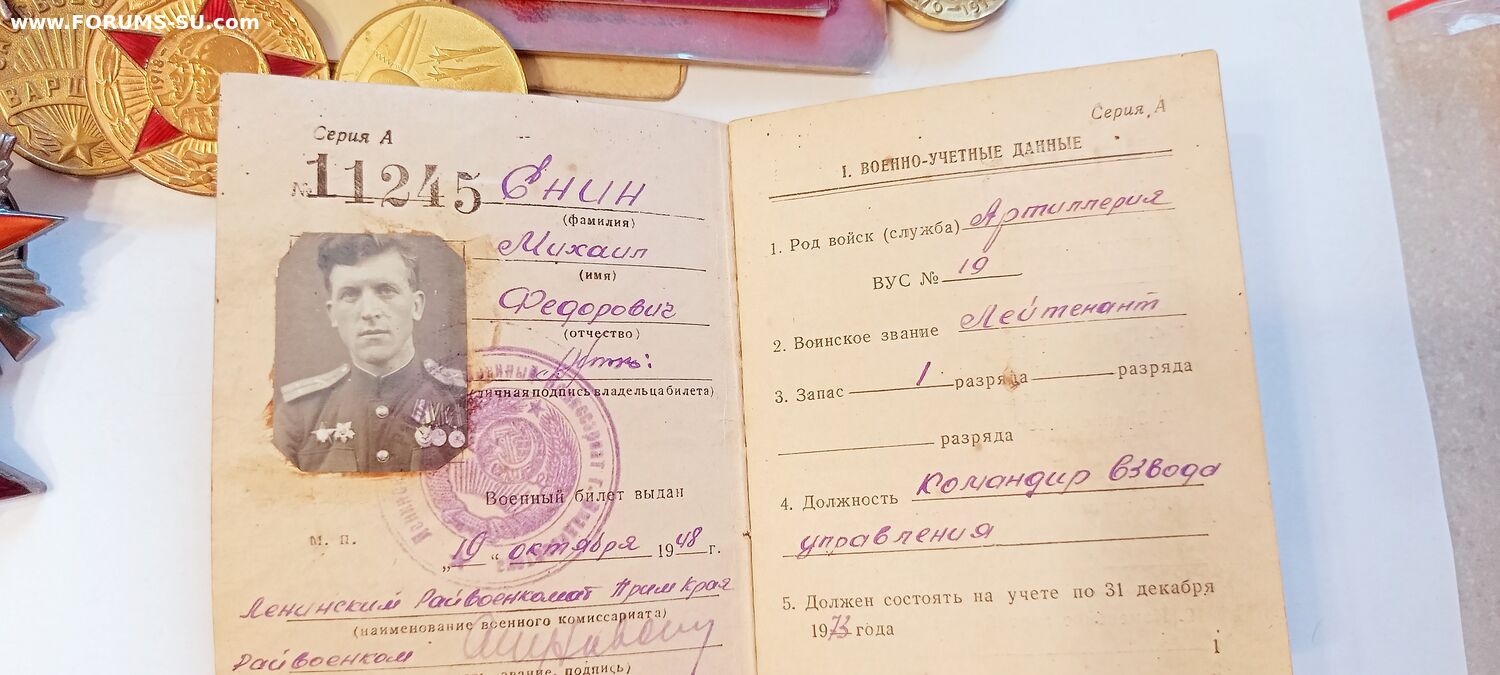 www.FORUMS-SU.com
ВАРШ
1918
Серия А
№ 11245 Енин
(фамилия)
Михаил
(имя)
Федорович
(отчество)
(личная подпись владельца билета)
Военный билет выдан
М. П.
„19“ октября 1948 г.
Ленинским Райвоенкомат Прим Края
(наименование военного комиссариата)
Райвоенком
звание, подпись)
Серия А
I. ВОЕННО-УЧЕТНЫЕ ДАННЫЕ
1. Род войск (служба) Артиллерия
ВУС № 19
2. Воинское звание Лейтенант
3. Запас 1 разряда разряда
разряда
4. Должность Командир взвода
управления
5. Должен состоять на учете по 31 декабря
1973 года
1